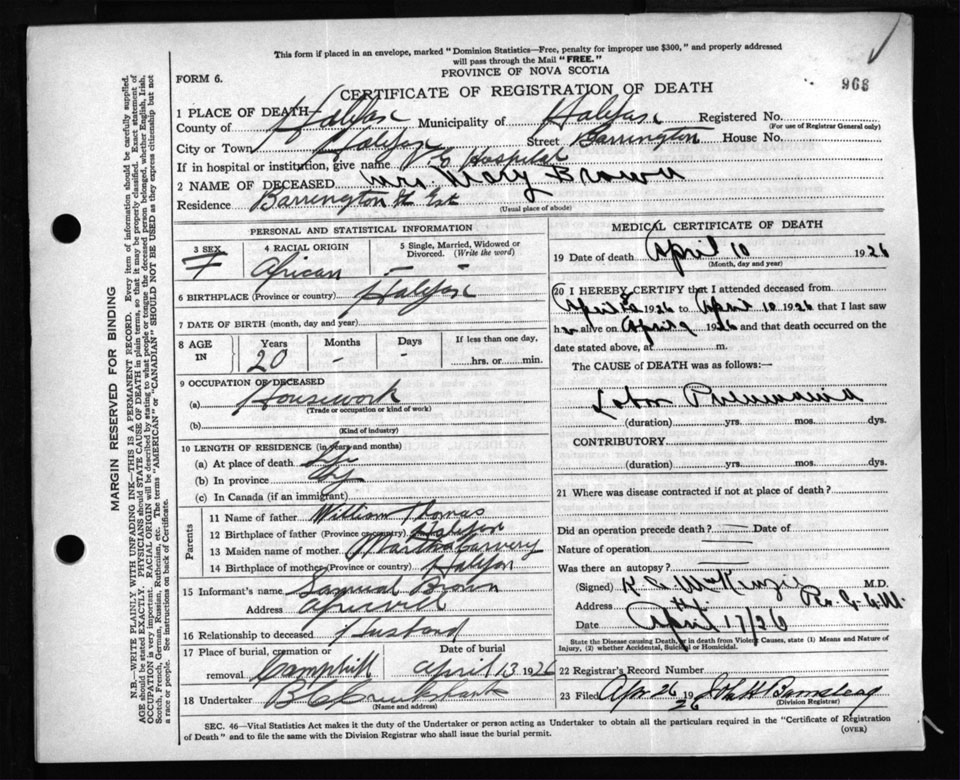 This form if placed in an envelope, marked "Dominion Statistics—Free, penalty for improper use $300," and properly addressed
will pass through the Mail "FREE."
PROVINCE OF NOVA SCOTIA
FORM 6.
968
CERTIFICATE OF REGISTRATION OF DEATH
1 PLACE OF DEATH
County of Halifax Municipality of Halifax Registered No.
(For use of Registrar General only)
City or Town Halifax Street Barrington House No.
If in hospital or institution, give name V.G. Hospital
2 NAME OF DECEASED Mrs Mary Brown
Residence Barrington St
(Usual place of abode)
PERSONAL AND STATISTICAL INFORMATION
3 SEX 4 RACIAL ORIGIN 5 Single, Married, Widowed or
Divorced. (Write the word)
F African – –
6 BIRTHPLACE (Province or country) Halifax
7 DATE OF BIRTH (month, day and year)
8 AGE IN Years Months Days If less than one day,
20 – – hrs. or min.
9 OCCUPATION OF DECEASED
(a) Housework
(Trade or occupation or kind of work)
(b)
(Kind of industry)
10 LENGTH OF RESIDENCE (in years and months)
(a) At place of death
(b) In province
(c) In Canada (if an immigrant)
Parents
11 Name of father William Thomas
12 Birthplace of father (Province or country) Halifax
13 Maiden name of mother Martha Carvery
14 Birthplace of mother (Province or country) Halifax
15 Informant's name Samual Brown
Address Africville
16 Relationship to deceased Husband
17 Place of burial, cremation or Date of burial
removal Camphill April 13 1926
18 Undertaker
(Name and address)
MEDICAL CERTIFICATE OF DEATH
19 Date of death April 10 1926
(Month, day and year)
20 I HEREBY CERTIFY that I attended deceased from
April 1926 to April 10 1926 that I last saw
her alive on April 9 1926 and that death occurred on the
date stated above, at m.
The CAUSE of DEATH was as follows:—
Lobar Pneumonia
(duration) yrs. mos. dys.
CONTRIBUTORY
(duration) yrs. mos. dys.
21 Where was disease contracted if not at place of death?
Did an operation precede death? Date of
Nature of operation
Was there an autopsy?
(Signed) McKenzie M.D.
Address
Date April 17/26
State the Disease causing Death, or in death from Violent Causes, state (1) Means and Nature of
Injury, (2) whether Accidental, Suicidal or Homicidal.
22 Registrar's Record Number
23 Filed Apr 26 1926
(Division Registrar)
SEC. 46—Vital Statistics Act makes it the duty of the Undertaker or person acting as Undertaker to obtain all the particulars required in the "Certificate of Registration
of Death" and to file the same with the Division Registrar who shall issue the burial permit.
(OVER)
MARGIN RESERVED FOR BINDING
N.B.—WRITE PLAINLY, WITH UNFADING INK—THIS IS A PERMANENT RECORD. Every item of information should be carefully supplied.
AGE should be stated EXACTLY. PHYSICIANS should STATE CAUSE OF DEATH in plain terms, so that it may be properly classified. Exact statement of
OCCUPATION is very important. RACIAL ORIGIN will be described by stating to what people or tongue the deceased person belonged, whether English, Irish,
Scotch, French, German, Russian, Ruthenian, etc. The terms "AMERICAN" or "CANADIAN" SHOULD NOT BE USED as they express citizenship but not
a race or people. See instructions on back of Certificate.